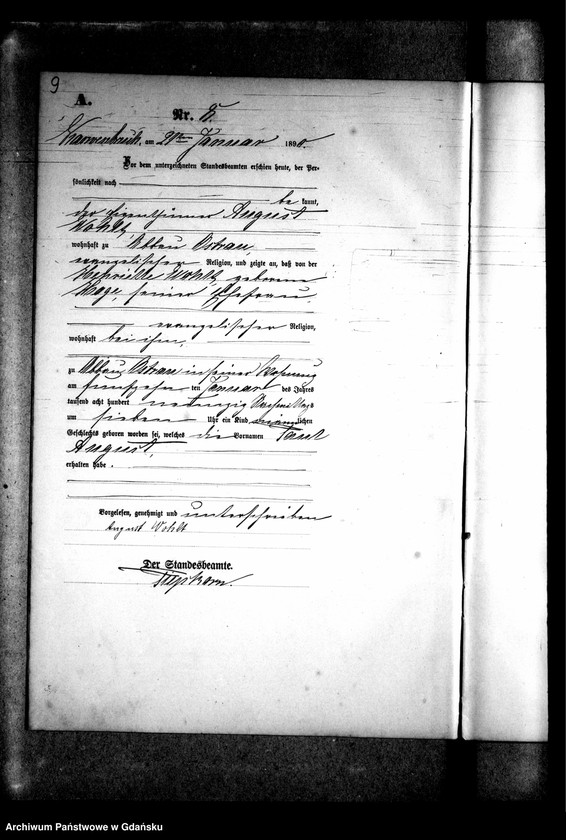 9
A.
Nr. 8.
am 21ten Januar 1890.
Vor dem unterzeichneten Standesbeamten erschien heute, der Per-
sönlichkeit nach
be kannt,
der Eigenthümer August
Wohlt,
wohnhaft zu Abbau Ostrau
evangelischer Religion, und zeigte an, daß von der
Wohlt, geborene
seiner Ehefrau,
evangelischer Religion,
wohnhaft bei ihm,
zu Abbau Ostrau in seiner Wohnung
am fünfzehn ten Januar des Jahres
tausend acht hundert neunzig Nachmittags
um sieben Uhr ein Kind männlichen
Geschlechts geboren worden sei, welches die Vornamen Paul
August,
erhalten habe.
Vorgelesen, genehmigt und unterschrieben
August Wohlt
Der Standesbeamte.
Archiwum Państwowe w Gdańsku